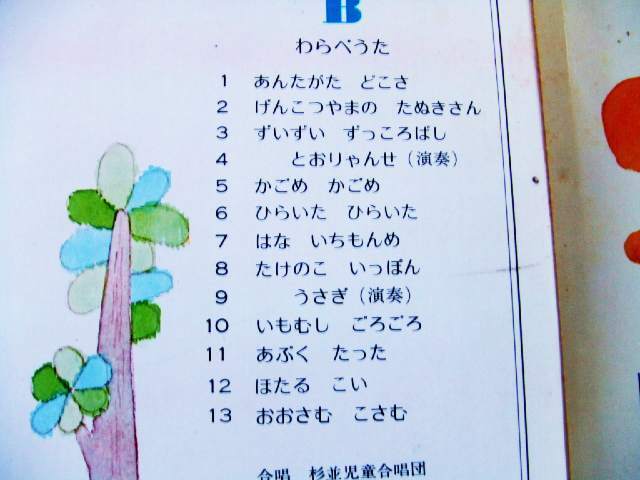 B
わらべうた
1 あんたがた どこさ
2 げんこつやまの たぬきさん
3 ずいずい ずっころばし
4 とおりゃんせ（演奏）
5 かごめ かごめ
6 ひらいた ひらいた
7 はな いちもんめ
8 たけのこ いっぽん
9 うさぎ（演奏）
10 いもむし ごろごろ
11 あぶく たった
12 ほたる こい
13 おおさむ こさむ
合唱 杉並児童合唱団